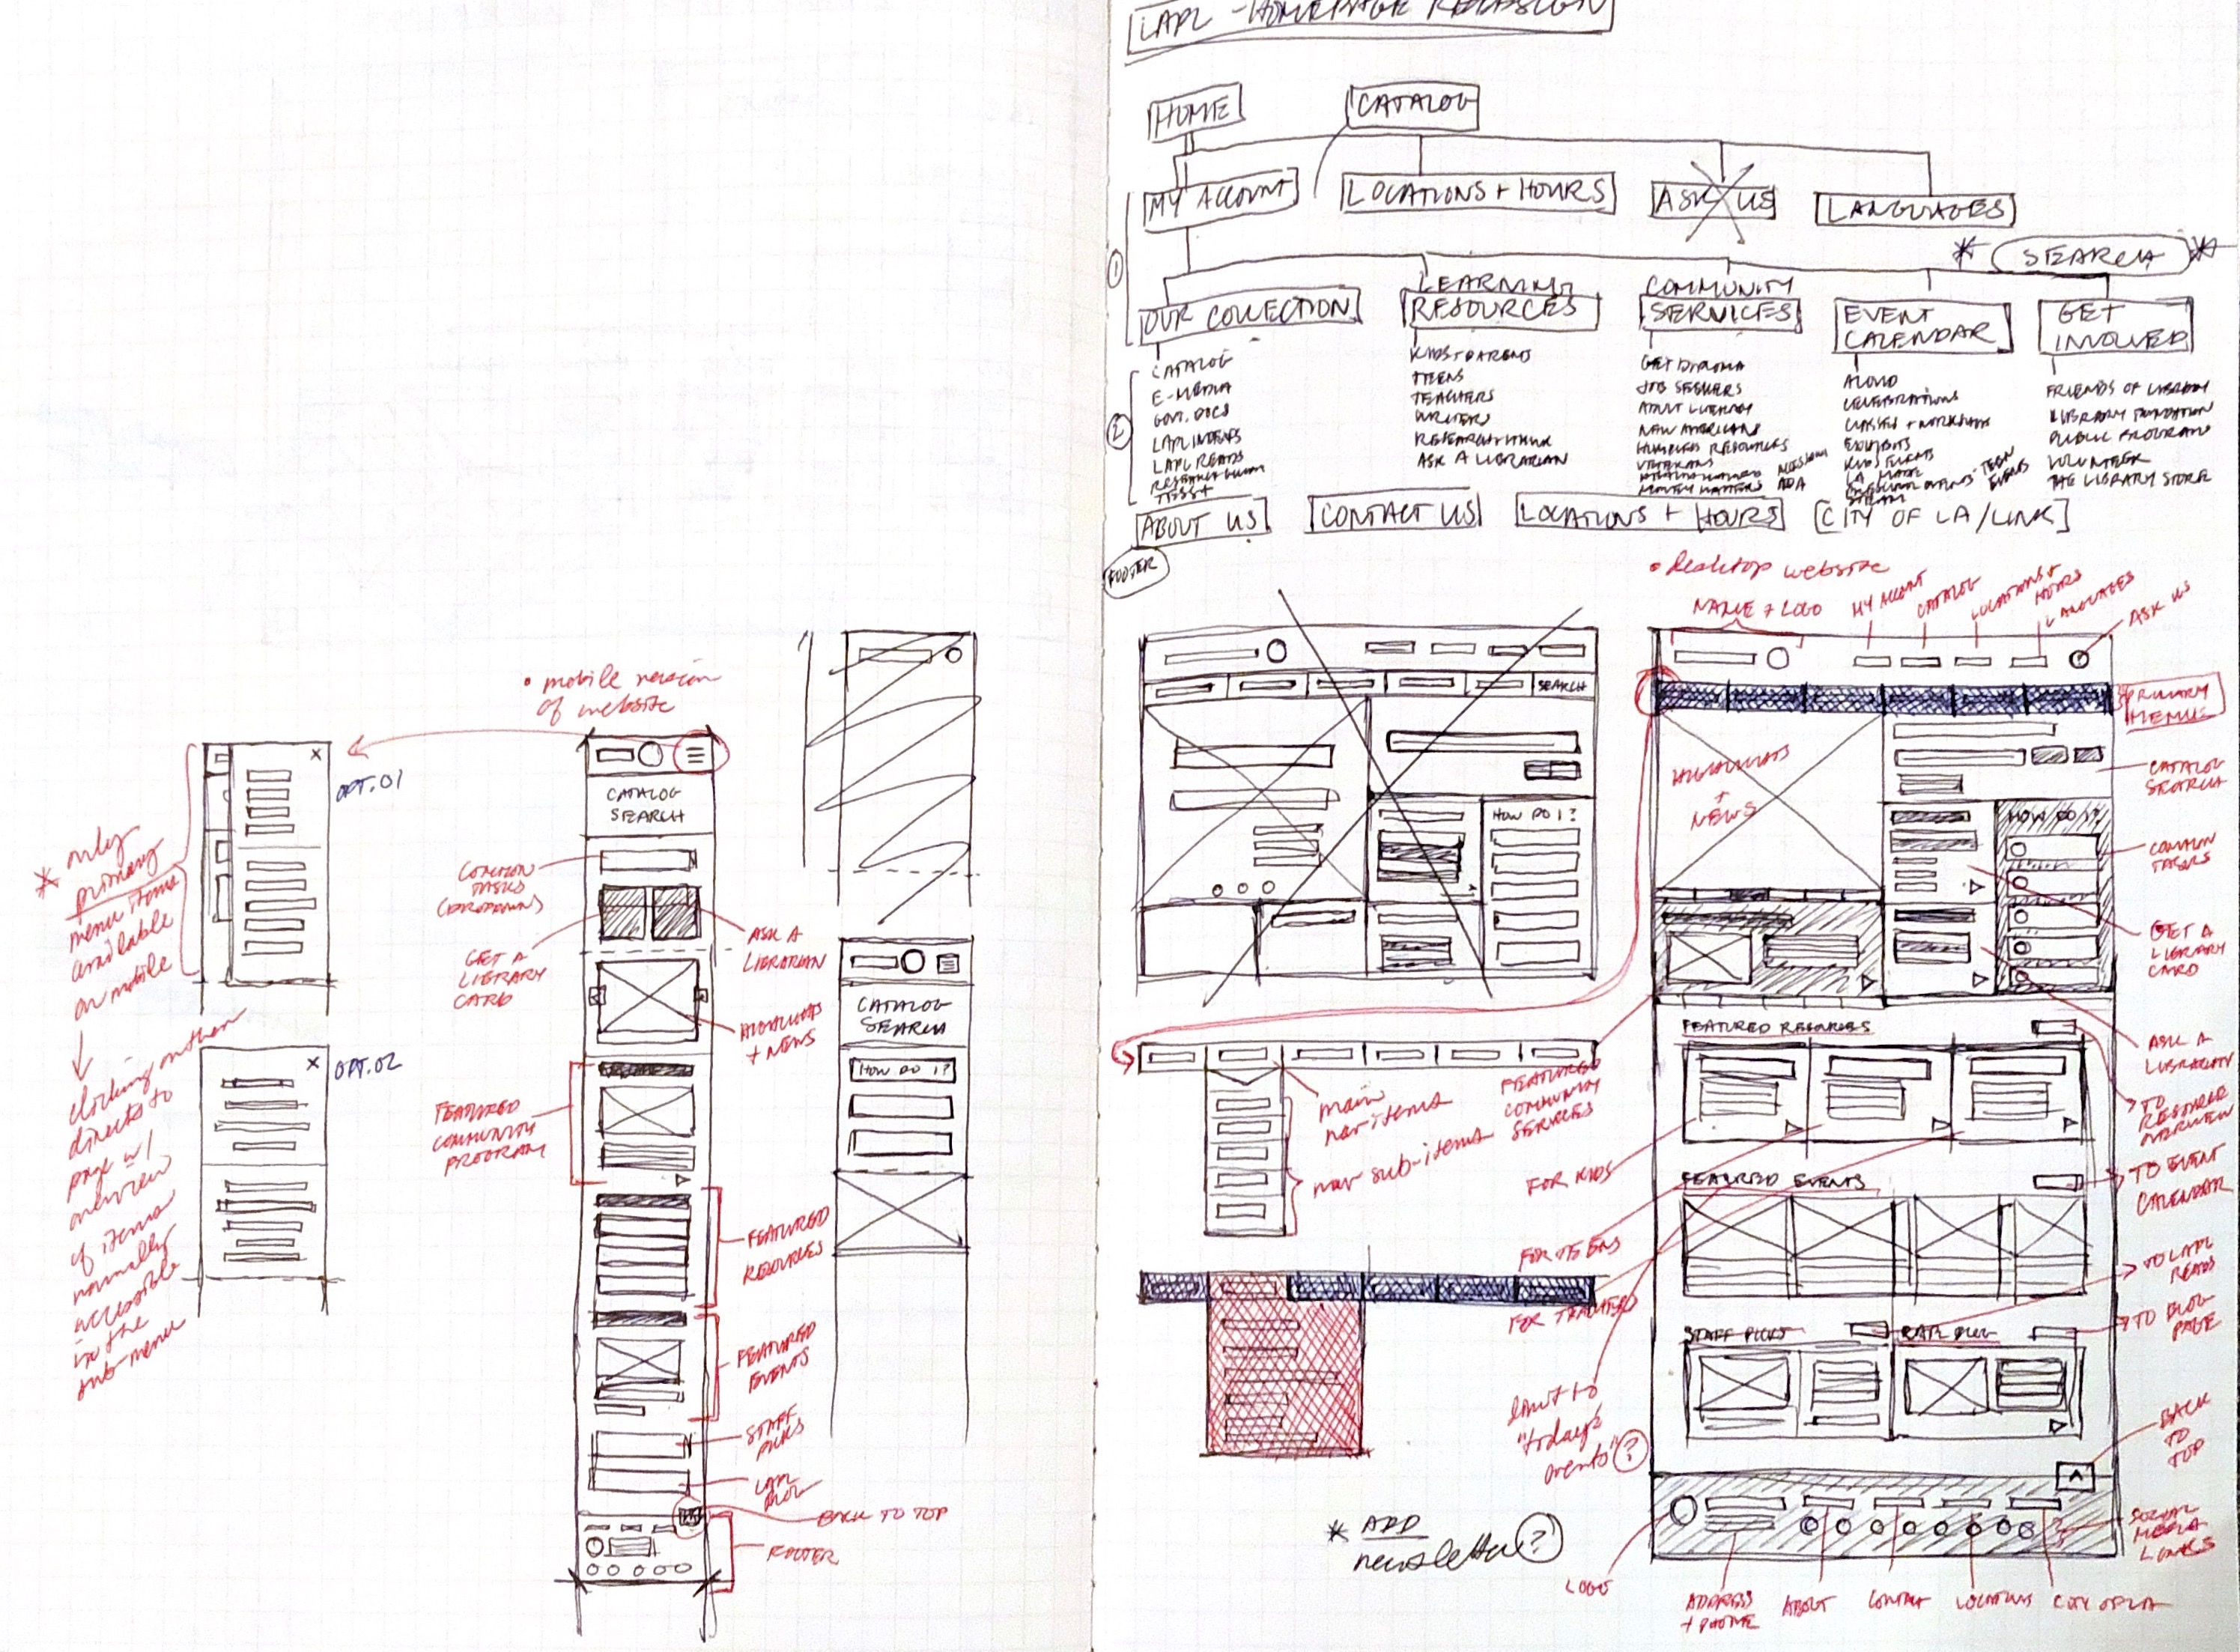 LAPL - HOMEPAGE REDESIGN
HOME
CATALOG
MY ACCOUNT
LOCATIONS + HOURS
ASK US
LANGUAGES
* SEARCH *
1
OUR COLLECTION
LEARNING
RESOURCES
COMMUNITY
SERVICES
EVENT
CALENDAR
GET
INVOLVED
2
CATALOG
E-MEDIA
GOVT. DOCS
LAPL INDEXES
LAPL READS
KIDS + PARENTS
TEENS
TEACHERS
WRITERS
ASK A LIBRARIAN
GET DIPLOMA
JOB SEEKERS
ADULT LITERACY
NEW AMERICANS
VETERANS
MONEY MATTERS ADA
ALOUD
CELEBRATIONS
CLASSES + WORKSHOPS
EXHIBITS
KIDS EVENTS
TEEN
EVENTS
FRIENDS OF LIBRARY
LIBRARY FOUNDATION
PUBLIC PROGRAMS
VOLUNTEER
THE LIBRARY STORE
ABOUT US
CONTACT US
LOCATIONS + HOURS
[CITY OF LA/LINK]
FOOTER
• mobile version
of website
OPT.01
* only
primary
menu items
available
on mobile
clicking on them
directs to
page w/
overview
of items
normally
accessible
in the
sub-menu
OPT.02
CATALOG
SEARCH
COMMON
TASKS
(DROPDOWN)
GET A
LIBRARY
CARD
ASK A
LIBRARIAN
HIGHLIGHTS
+ NEWS
FEATURED
COMMUNITY
PROGRAM
FEATURED
RESOURCES
FEATURED
EVENTS
STAFF
PICKS
LAPL
BLOG
BACK TO TOP
FOOTER
CATALOG
SEARCH
HOW DO I?
SEARCH
HOW DO I?
• desktop website
NAME + LOGO
MY ACCOUNT
CATALOG
LOCATIONS +
HOURS
LANGUAGES
ASK US
PRIMARY
MENUS
HIGHLIGHTS
+
NEWS
CATALOG
SEARCH
HOW DO I?
COMMON
TASKS
GET A
LIBRARY
CARD
ASK A
LIBRARIAN
FEATURED RESOURCES
TO
RESOURCE
OVERVIEW
main
nav items
nav sub-items
FEATURED
COMMUNITY
SERVICES
FOR KIDS
FOR TEENS
FOR TEACHERS
FEATURED EVENTS
TO EVENT
CALENDAR
TO LAPL
READS
TO BLOG
PAGE
STAFF PICKS
LAPL BLOG
limit to
"today's
events" ?
BACK
TO
TOP
* ADD
newsletter ?
SOCIAL
MEDIA
LINKS
LOGO
ADDRESS
+ PHONE
ABOUT
CONTACT
LOCATIONS
CITY OF LA